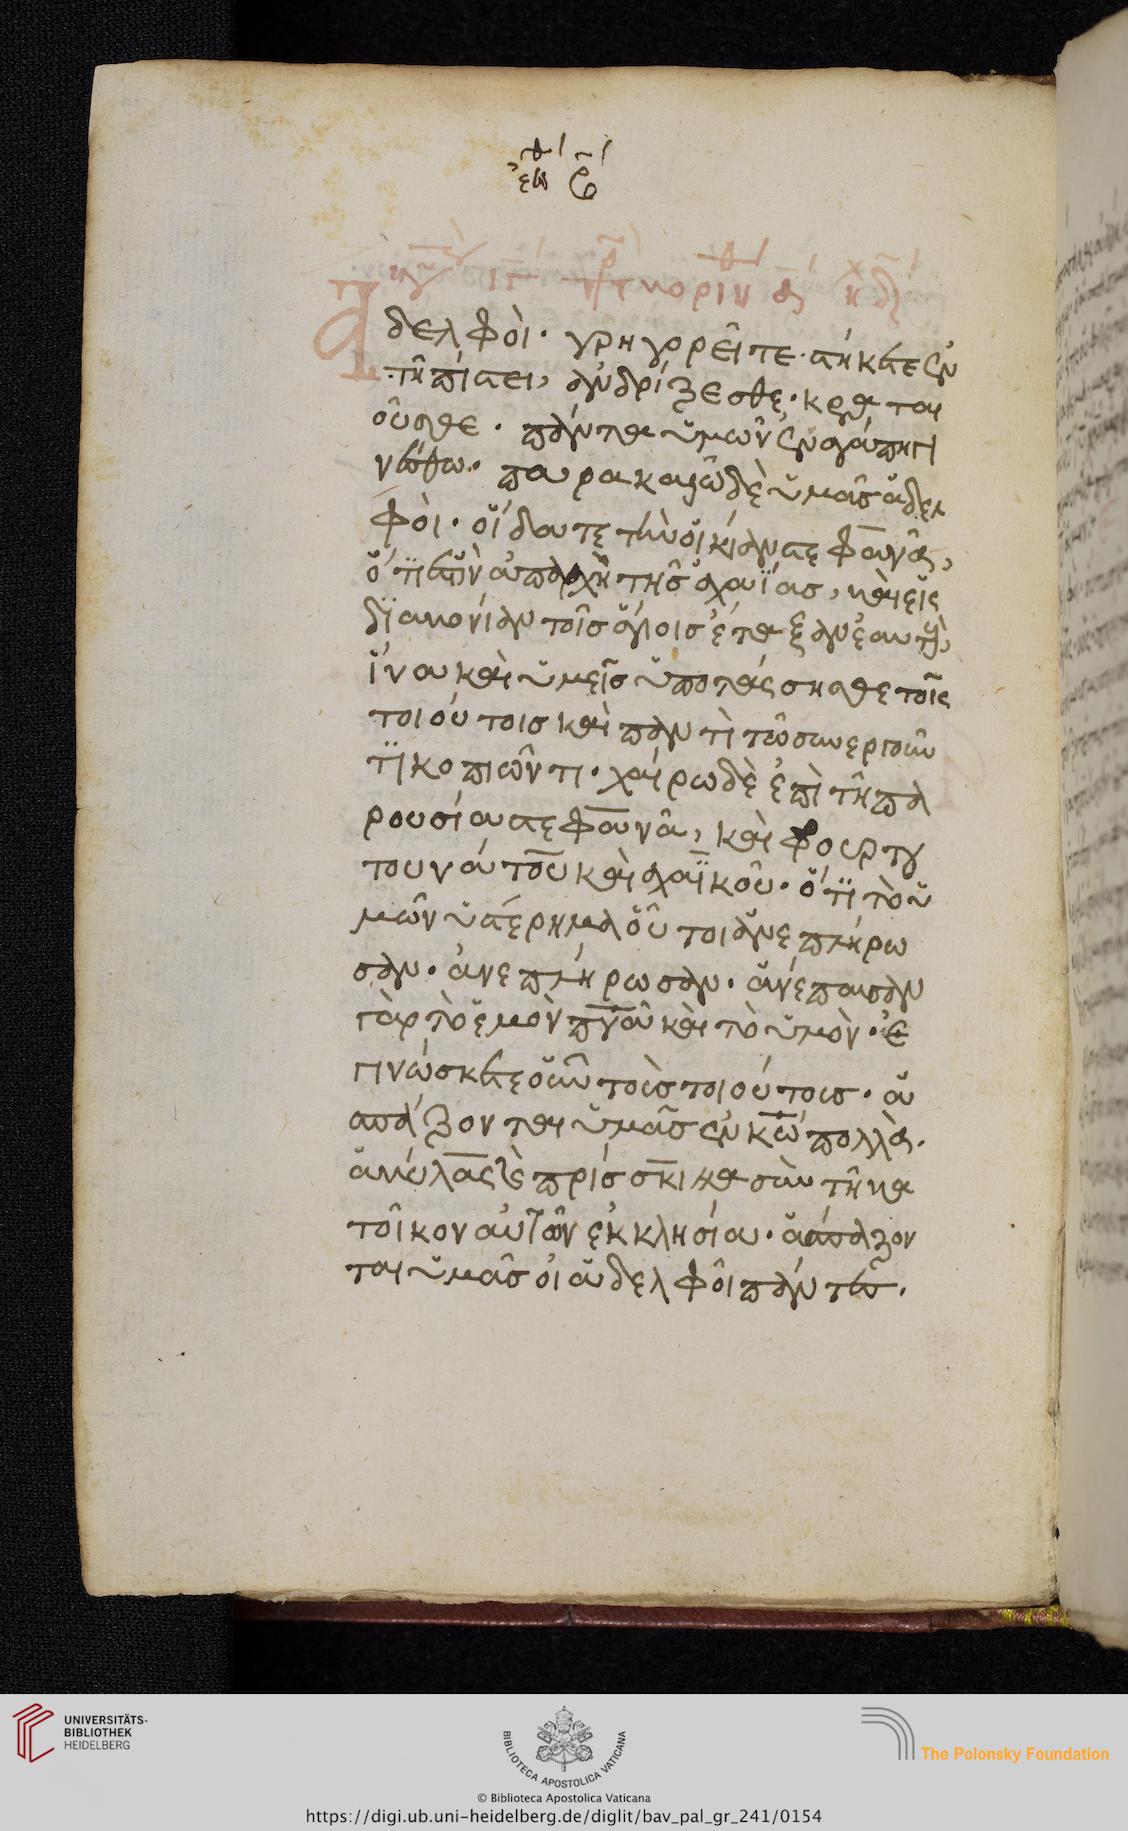 ἀδελφοὶ· γρηγορεῖτε· στήκετε ἐν
τῆ πίστει, ἀνδρίζεσθε· κρατοι
οῦσθε· πάντα ὑμῶν ἐν ἀγάπη γι
νέσθω· παρακαλῶ δὲ ὑμᾶς ἀδελ
φοὶ· οἴδατε τὴν οἰκίαν στεφανᾶ,
ὅτι ἐστὶν ἀπαρχὴ τῆς ἀχαΐας, καὶ εἰς
διακονίαν τοῖς ἁγίοις ἔταξαν ἑαυτοὺ,
ἵνα καὶ ὑμεῖς ὑποτάσσησθε τοῖς
τοιούτοις καὶ παντὶ τῶ συνεργοῦν
τι κοπιῶντι· χαίρω δὲ ἐπὶ τῆ πα
ρουσία στεφανᾶ, καὶ φουρτου
τουνάτου καὶ ἀχαϊκοῦ· ὅτι τὸ ὑ
μῶν ὑστέρημα οὗτοι ἀνεπλήρω
σαν· ἀνεπλήρωσαν· ἀνέπαυσαν
γὰρ τὸ ἐμὸν πνα καὶ τὸ ὑμὸν· ἐ
γινώσκετε οὖν τοὺς τοιούτους· ἀ
σπάζονται ὑμᾶς ἐν κω πολλὰ·
ἀκύλας καὶ πρίσκιλλα σὺν τῆ κα
τοῖκον αὐτῶν ἐκκλησία· ἀσπάζον
ται ὑμᾶς οἱ ἀδελφοὶ πάντες·
UNIVERSITÄTS-
BIBLIOTHEK
HEIDELBERG
BIBLIOTECA APOSTOLICA VATICANA
The Polonsky Foundation
© Biblioteca Apostolica Vaticana
https://digi.ub.uni-heidelberg.de/diglit/bav_pal_gr_241/0154